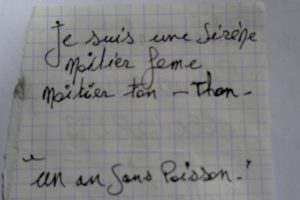 Je suis une Sirène
Moitier feme
Moitier ton - Thon -
Un an sans Poisson.!